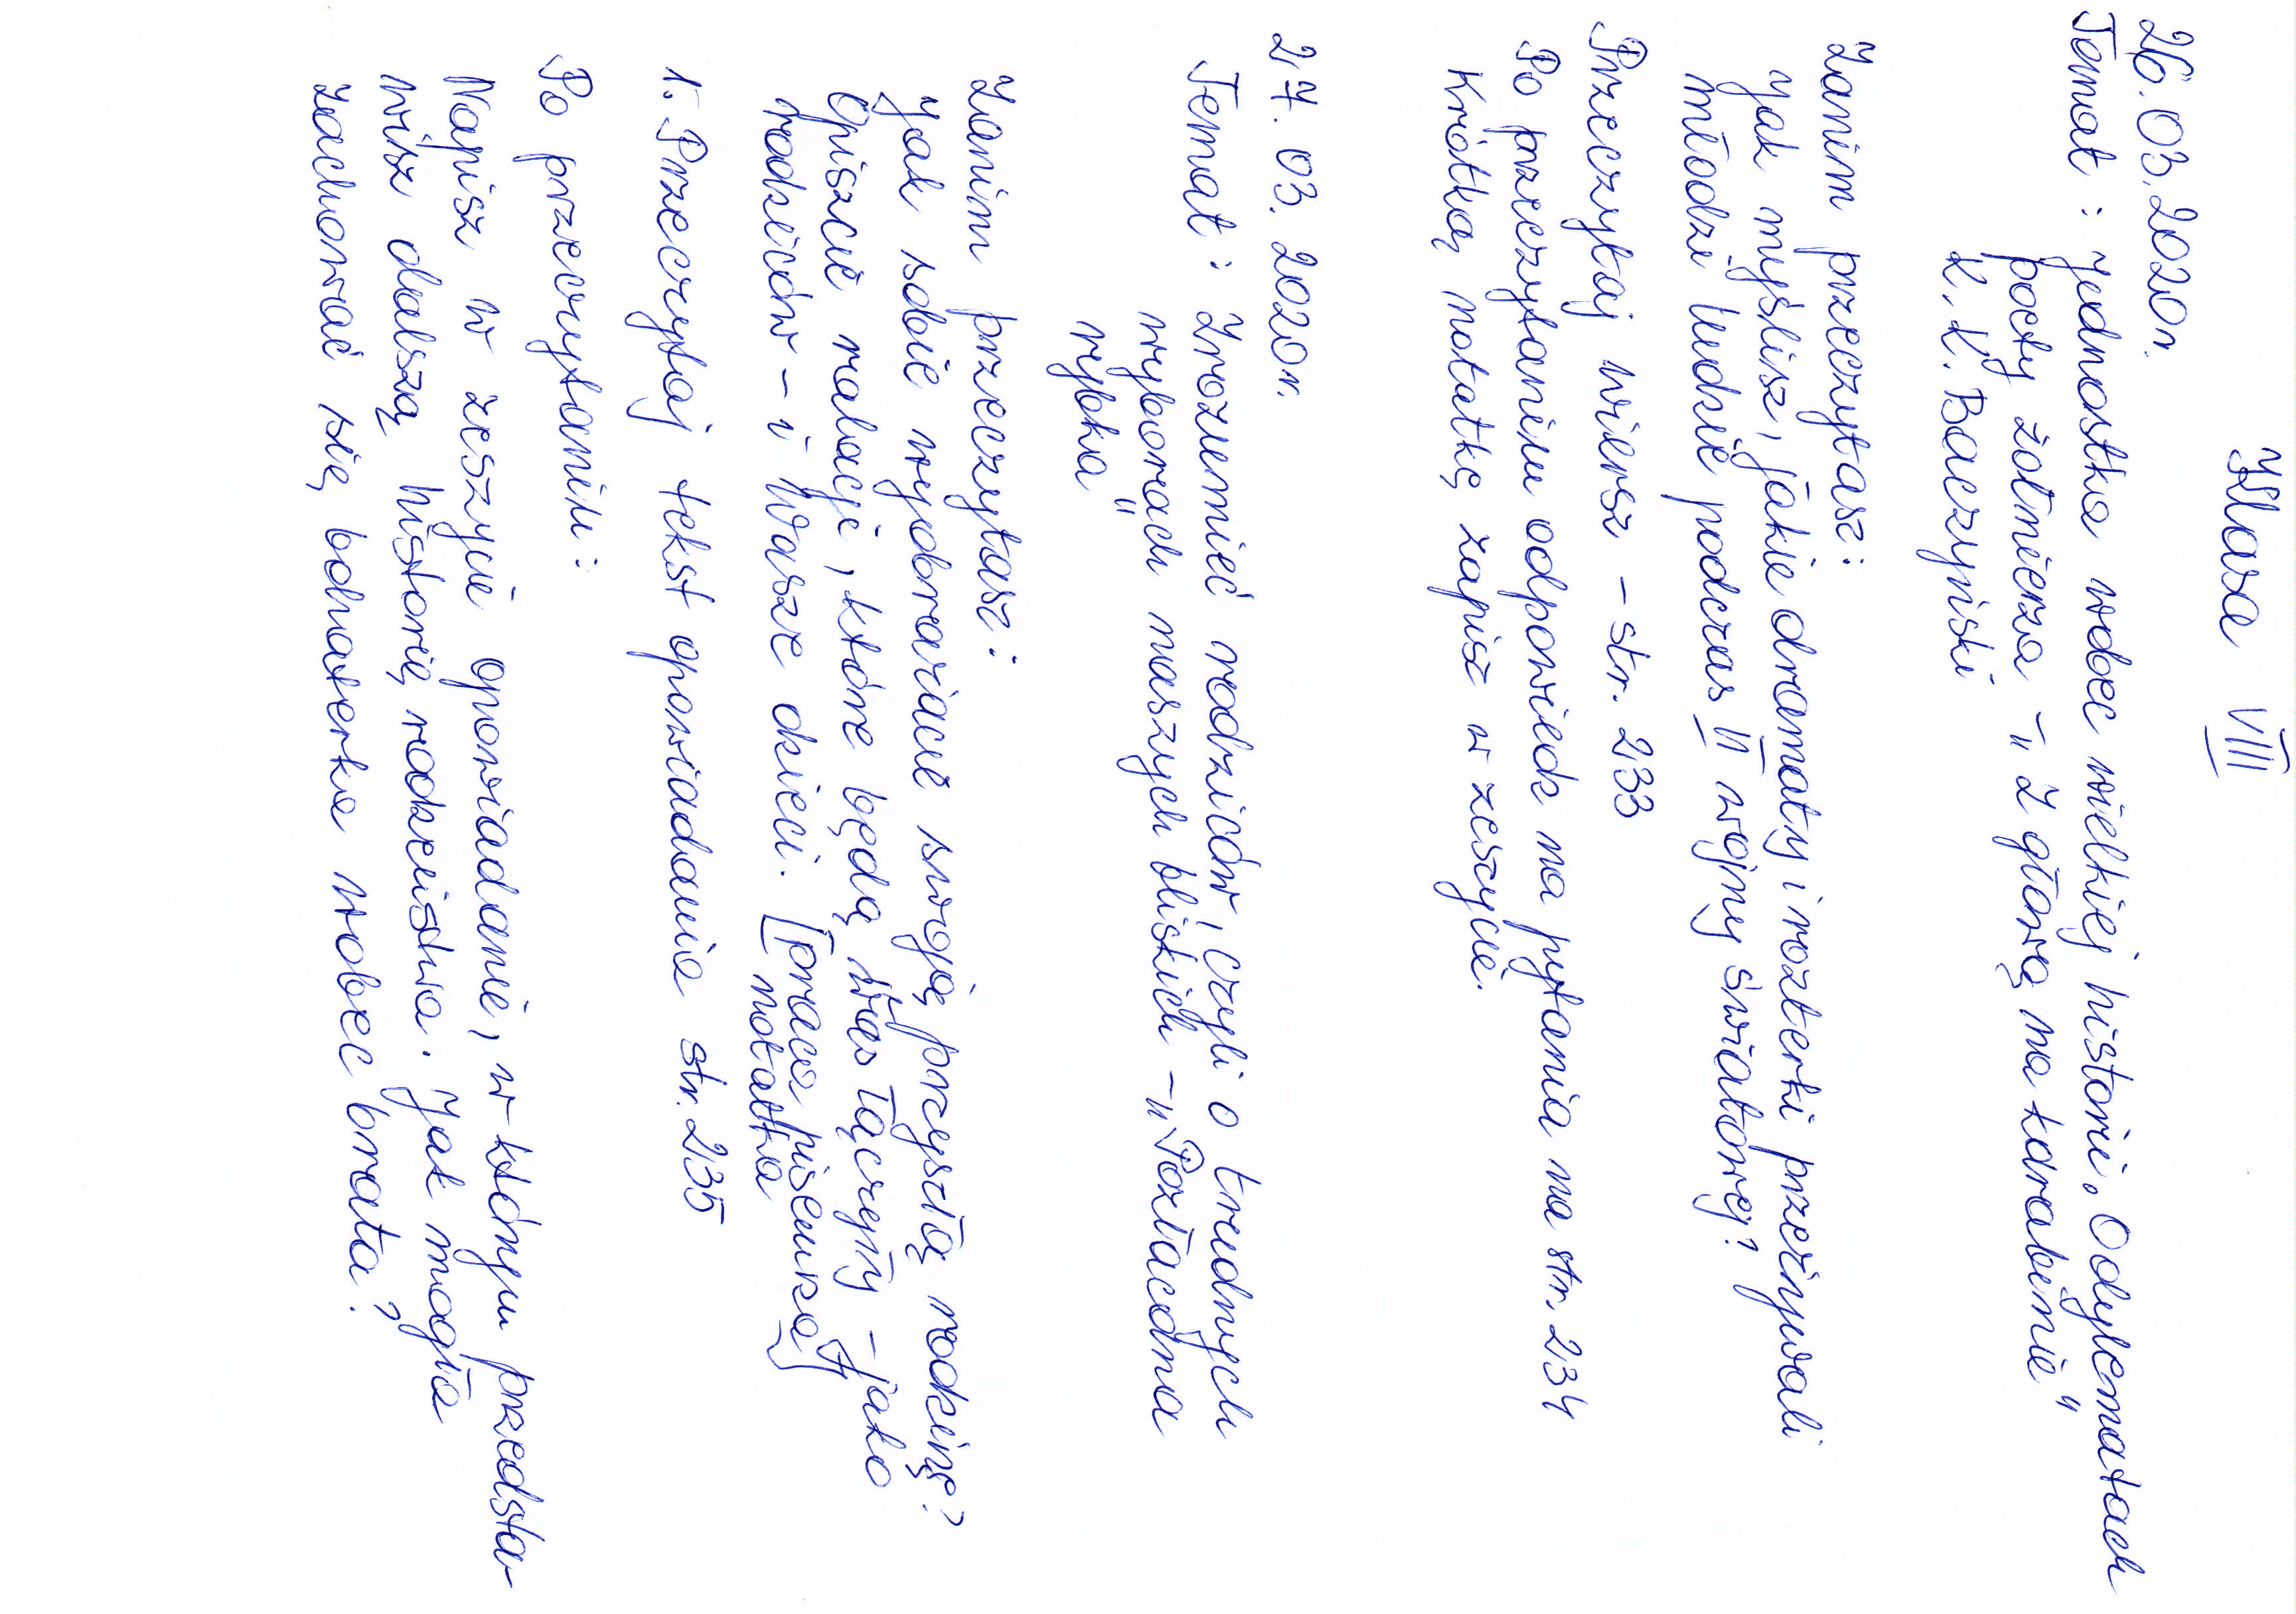 Klasa VIII
26.03.2020r.
Temat: Jednostka wobec wielkiej historii. O dylematach
poety żołnierza – „Z głową na karabinie"
K. K. Baczyński
Zanim przeczytasz:
Jak myślisz, jakie dramaty i rozterki przeżywali
młodzi ludzie podczas II wojny światowej?
Przeczytaj wiersz – str. 233
Po przeczytaniu odpowiedz na pytania na str. 234
Krótką notatkę zapisz w zeszycie.
27. 03. 2020r.
Temat: Zrozumieć rodziców, czyli o trudnych
wyborach naszych bliskich – „Pozłacana
rybka"
Zanim przeczytasz:
Jak sobie wyobrażacie swoją przyszłą rodzinę?
Opiszcie relacje, które będą Was łączyły – jako
rodziców – i Wasze dzieci. [praca pisemna]
notatka
1. Przeczytaj tekst opowiadania str. 235
Po przeczytaniu:
Napisz w zeszycie opowiadanie, w którym przedsta-
wisz dalszą historię rodzeństwa. Jak mogła
zachować się bohaterka wobec brata?